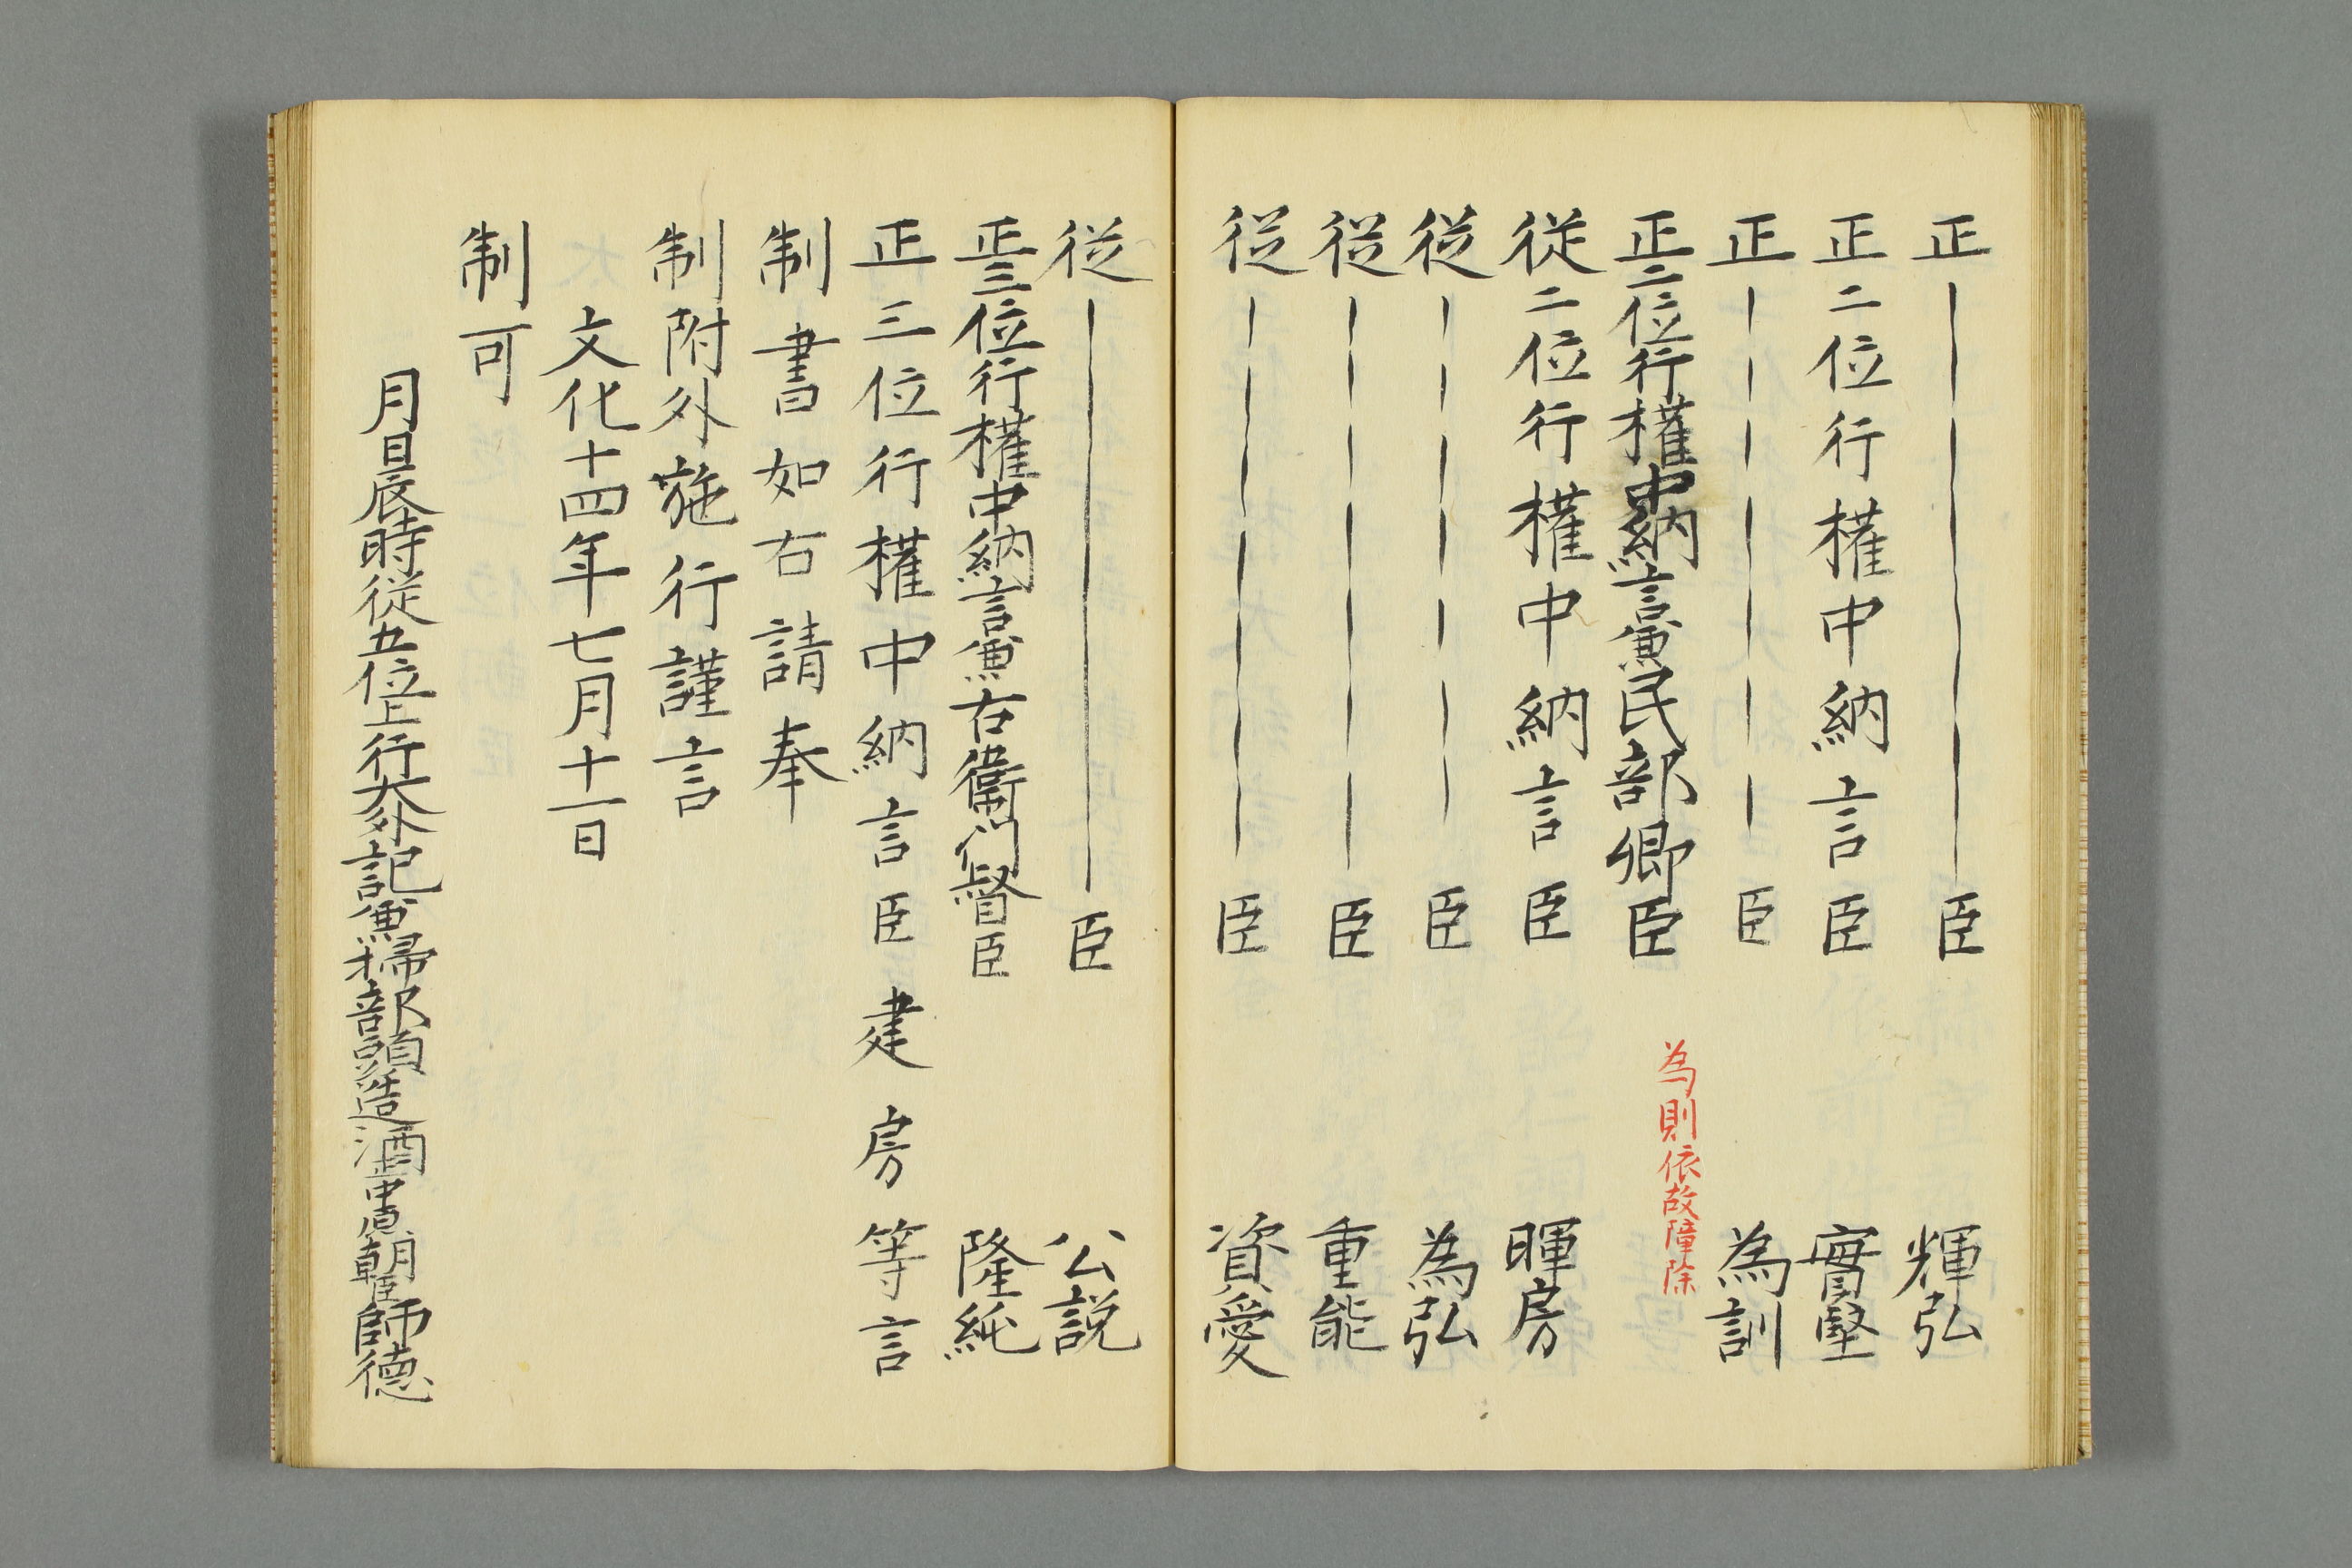 正――――――臣 輝弘
正二位行權中納言臣 實堅
正――――――臣 為訓
正二位行權中納言兼民部卿臣 為則依故障除
従二位行權中納言臣 暉房
従――――――臣 為弘
従――――――臣 重能
従――――――臣 資愛
従――――――臣 公説
正三位行權中納言兼右衛門督臣 隆純
正三位行權中納言臣建房等言
制書如右請奉
制附外施行謹言
文化十四年七月十一日
制可
月日辰時従五位上行大外記兼掃部頭造酒正中原朝臣師徳